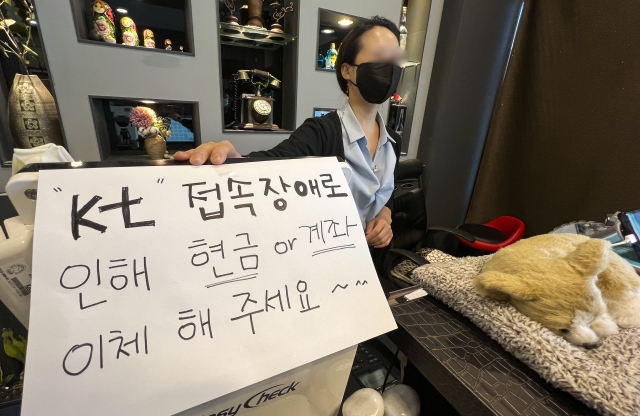 "kt" 접속장애로
인해 현금 or 계좌
이체 해 주세요 ~ ^^
Easy Check